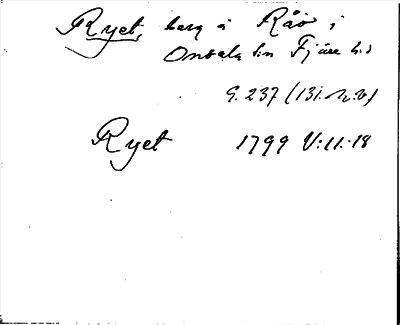 Ryet, berg å Råö i
Onsala sn Fjäre hd
G. 237 (131.
Ryet 1799 V:11.-18